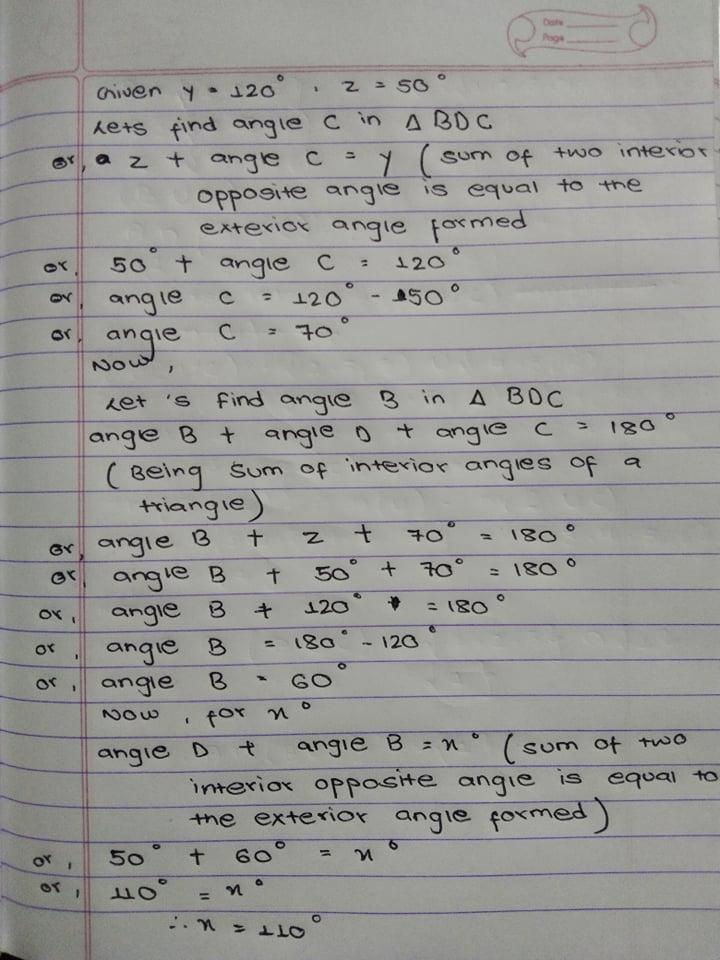 Date
Page
Given y = 120°, z = 50°
Lets find angle C in Δ BDC
or, z + angle C = y (sum of two interior
opposite angle is equal to the
exterior angle formed
or, 50° + angle C = 120°
or, angle C = 120° - 50°
or, angle C = 70°
Now,
Let's find angle B in Δ BDC
angle B + angle D + angle C = 180°
(Being sum of interior angles of a
triangle)
or, angle B + z + 70° = 180°
or, angle B + 50° + 70° = 180°
or, angle B + 120° = 180°
or, angle B = 180° - 120°
or, angle B = 60°
Now, for x°
angle D + angle B = x° (sum of two
interior opposite angle is equal to
the exterior angle formed)
or, 50° + 60° = x°
or, 110° = x°
∴ x = 110°